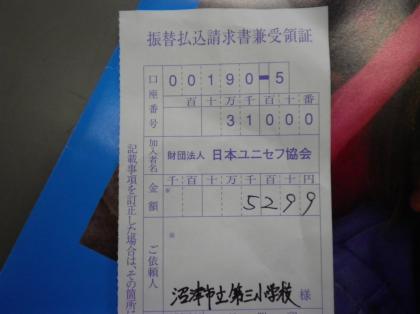 振替払込請求書兼受領証
口座番号
00190-5
百十万千百十番
31000
加入者名
財団法人 日本ユニセフ協会
金額
千百十万千百十円
※
5299
ご依頼人
※
沼津市立第三小学校 様
記載事項を訂正した場合は、その箇所